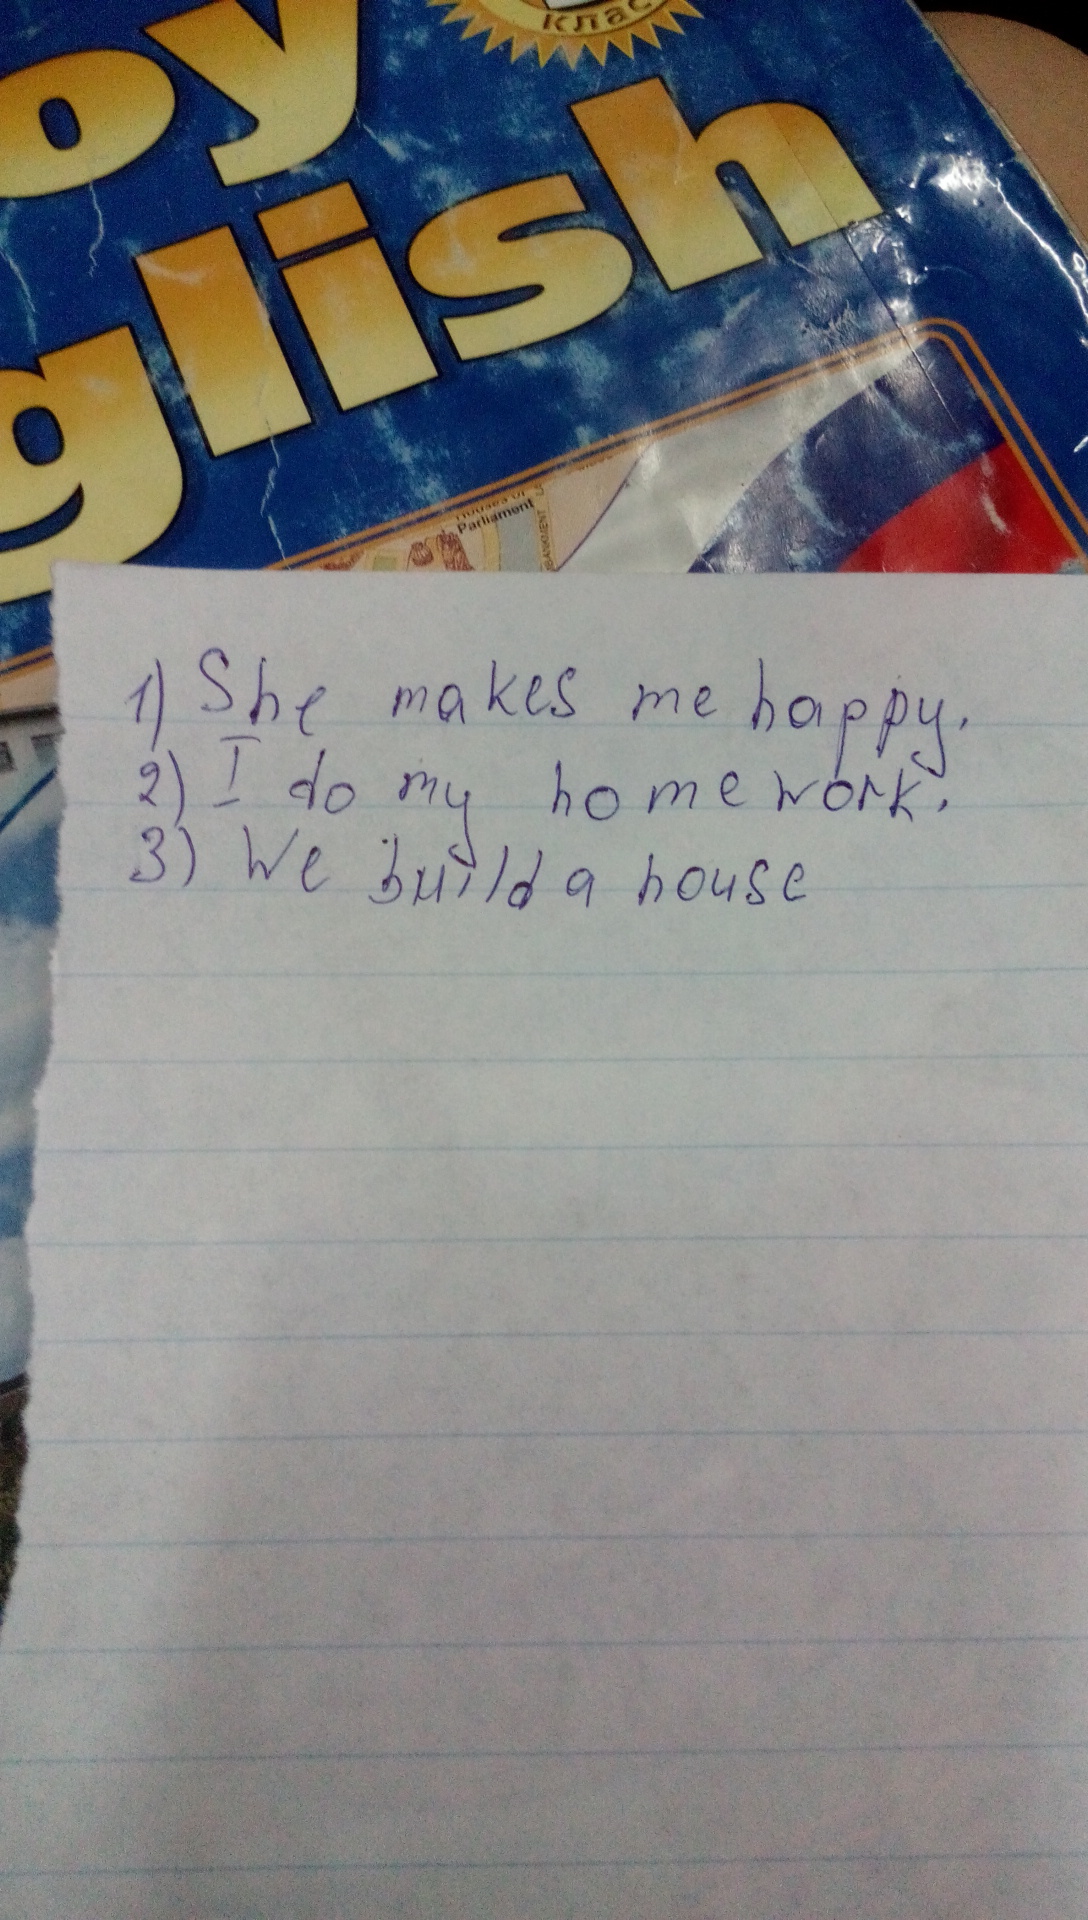 класс
oy
glish
Parliament
1) She makes me happy.
2) I do my homework.
3) We build a house